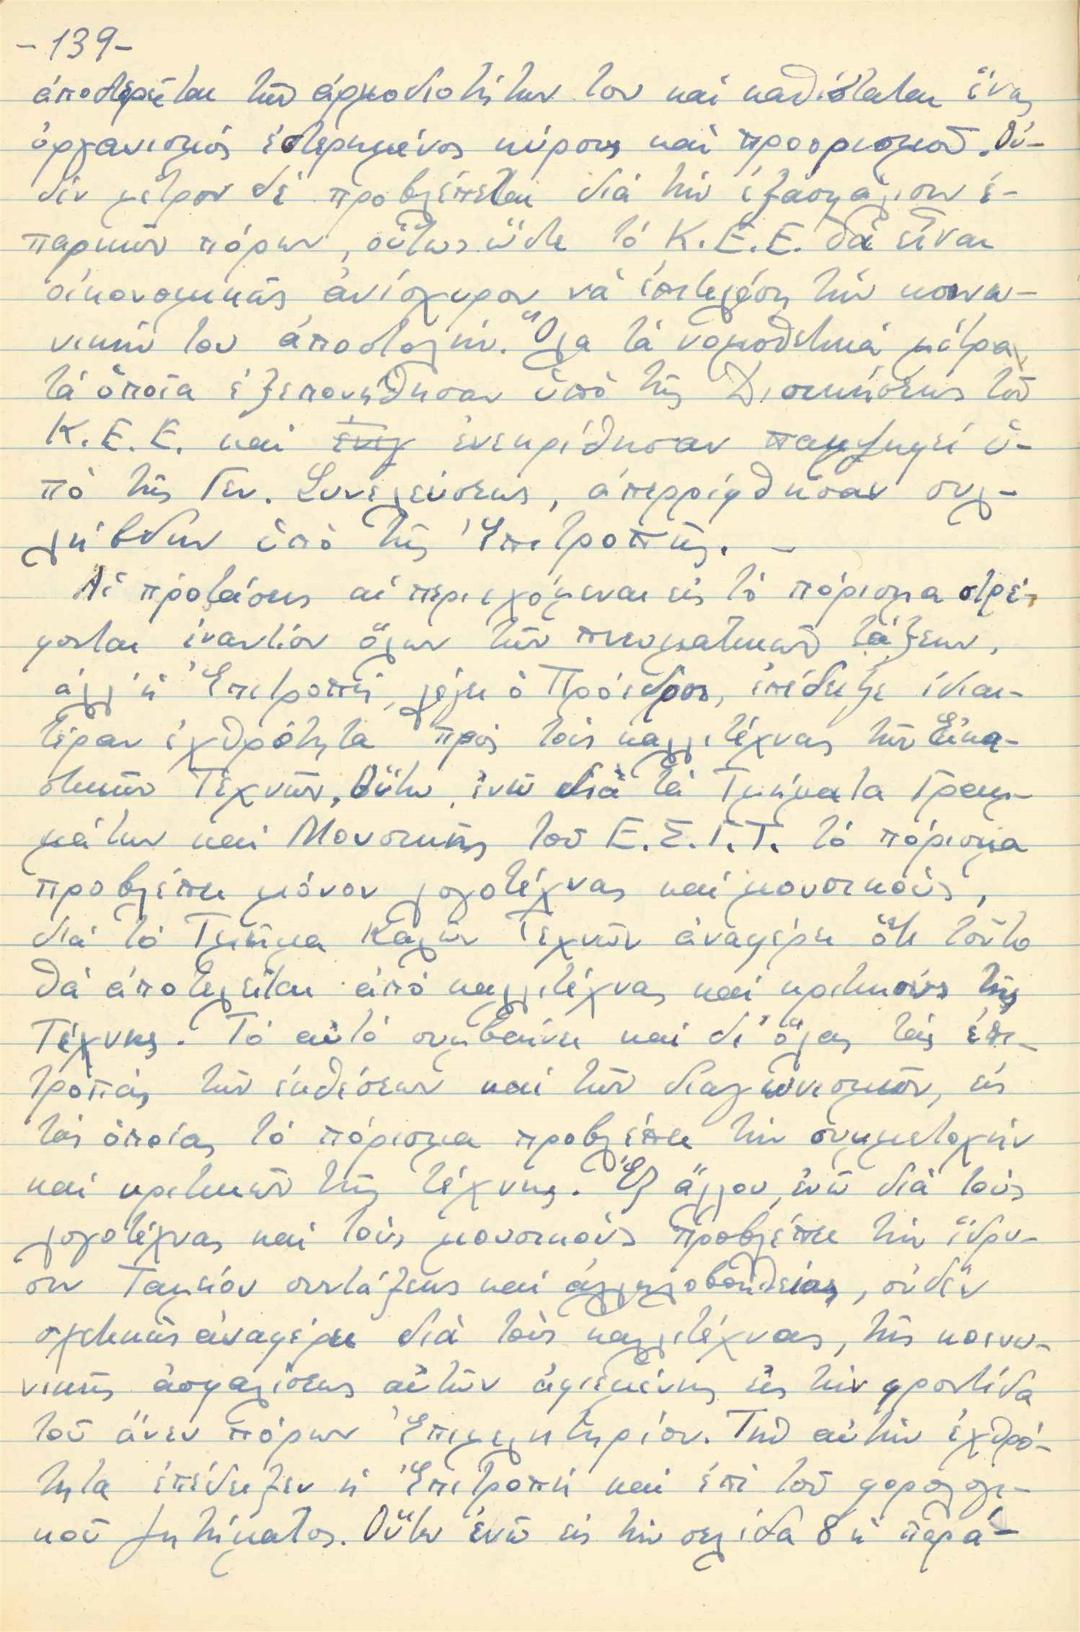 -139-
ἀποστερεῖται τῶν ἁρμοδιοτήτων του καὶ καθίσταται ἕνας
ὀργανισμός ἐστερημένος κύρους καὶ προορισμοῦ. Οὐ-
δέν μέτρον δέ προβλέπεται διά τήν ἐξασφάλισιν ἐ-
παρκῶν πόρων, οὕτως ὥστε τό Κ.Ε.Ε. θά εἶναι
οἰκονομικῶς ἀνίσχυρον νά ἐπιτελέσῃ τήν κοινω-
νικήν του ἀποστολήν. Ὅλα τά νομοθετικά μέτρα,
τά ὁποῖα ἐξεπονήθησαν ὑπό τῆς Διοικήσεως τοῦ
Κ.Ε.Ε. καί ἐνεκρίθησαν παμψηφεί ὑ-
πό τῆς Γεν. Συνελεύσεως, ἀπερρίφθησαν συλ-
λήβδην ὑπό τῆς Ἐπιτροπῆς. -
Αἱ προτάσεις αἱ περιεχόμεναι εἰς τό πόρισμα στρέ-
φονται ἐναντίον ὅλων τῶν πνευματικῶν τάξεων,
ἀλλ' ἡ Ἐπιτροπή, λέγει ὁ Πρόεδρος, ἐπέδειξε ἰδιαι-
τέραν ἐχθρότητα πρός τούς καλλιτέχνας τῶν Εἰκα-
στικῶν Τεχνῶν. Οὕτω, ἐνῶ διά τά Τμήματα Γραμ-
μάτων καί Μουσικῆς τοῦ Ε.Σ.Γ.Τ. τό πόρισμα
προβλέπει μόνον λογοτέχνας καί μουσικούς,
διά τό Τμῆμα Καλῶν Τεχνῶν ἀναφέρει ὅτι τοῦτο
θά ἀποτελεῖται ἀπό καλλιτέχνας καί κριτικούς τῆς
Τέχνης. Τό αὐτό συμβαίνει καί δι' ὅλας τάς ἐπι-
τροπάς τῶν ἐκθέσεων καί τῶν διαγωνισμῶν, εἰς
τάς ὁποίας τό πόρισμα προβλέπει τήν συμμετοχήν
καί κριτικῶν τῆς τέχνης. Ἐξ ἄλλου, ἐνῶ διά τούς
λογοτέχνας καί τούς μουσικούς προβλέπει τήν ἵδρυ-
σιν Ταμείου συντάξεως καί ἀλληλοβοηθείας, οὐδέν
σχετικῶς ἀναφέρει διά τούς καλλιτέχνας, τῆς κοινω-
νικῆς ἀσφαλίσεως αὐτῶν ἀφιεμένης εἰς τήν φροντίδα
τοῦ ἄνευ πόρων Ἐπιμελητηρίου. Τήν αὐτήν ἐχθρό-
τητα ἐπέδειξεν ἡ Ἐπιτροπή καί ἐπί τοῦ φορολογι-
κοῦ ζητήματος. Οὕτω ἐνῶ εἰς τήν σελίδα 8 ἡ παρά-